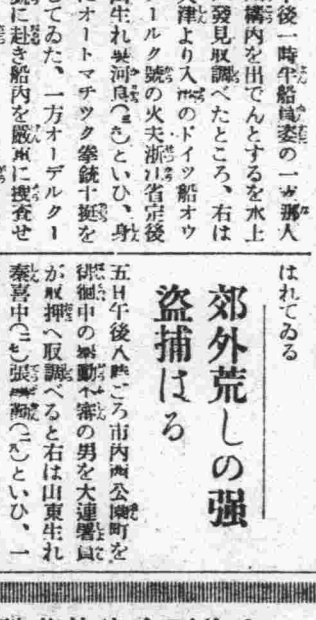 午後一時半船員姿の一支那人
構内を出でんとするを水上
發見取調べたところ、右は
天津より入港のドイツ船オウ
ールク號の火夫浙江省定後
生れ吳河良(三九)といひ、身
にオートマチック拳銃十挺を
してゐた、一方オーデルクー
號に赴き船内を嚴重に捜査せ
はれてゐる
郊外荒しの强
盗捕はる
五日午後八時ごろ市内西公園町を
徘徊中の擧動不審の男を大連署員
が取押へ取調べると右は山東生れ
秦喜中(三七)張 (二九)といひ、一